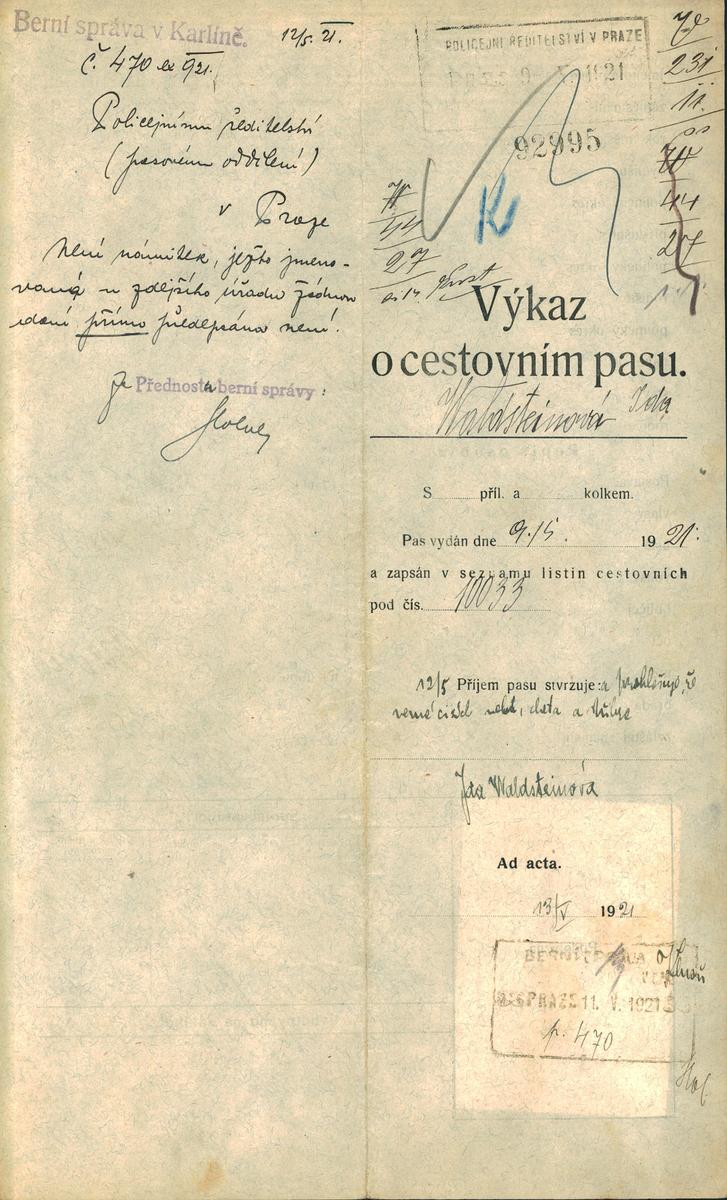 Berní správa v Karlíně.
12/5. 21.
Č. 470 ex 1921.
Policejnímu ředitelství
(pasovému oddělení)
v Praze
Není námitek, ježto jmeno-
vaná u zdejšího úřadu žádnou
daní přímo předepsána není.
Za Přednosta berní správy:
POLICEJNÍ ŘEDITELSTVÍ V PRAZE
1921
92995
231
11
44
27
44
27
Výkaz
o cestovním pasu.
Waldsteinová Ida
S příl. a kolkem.
Pas vydán dne 9./5. 1921.
a zapsán v seznamu listin cestovních
pod čís. 10033
12/5 Příjem pasu stvrzuje: a prohlašuje, že
nemá cizích
Ida Waldsteinová
Ad acta.
13/V 1921
BERNÍ SPRÁVA
PRAZE 11. V. 1921
p. 470